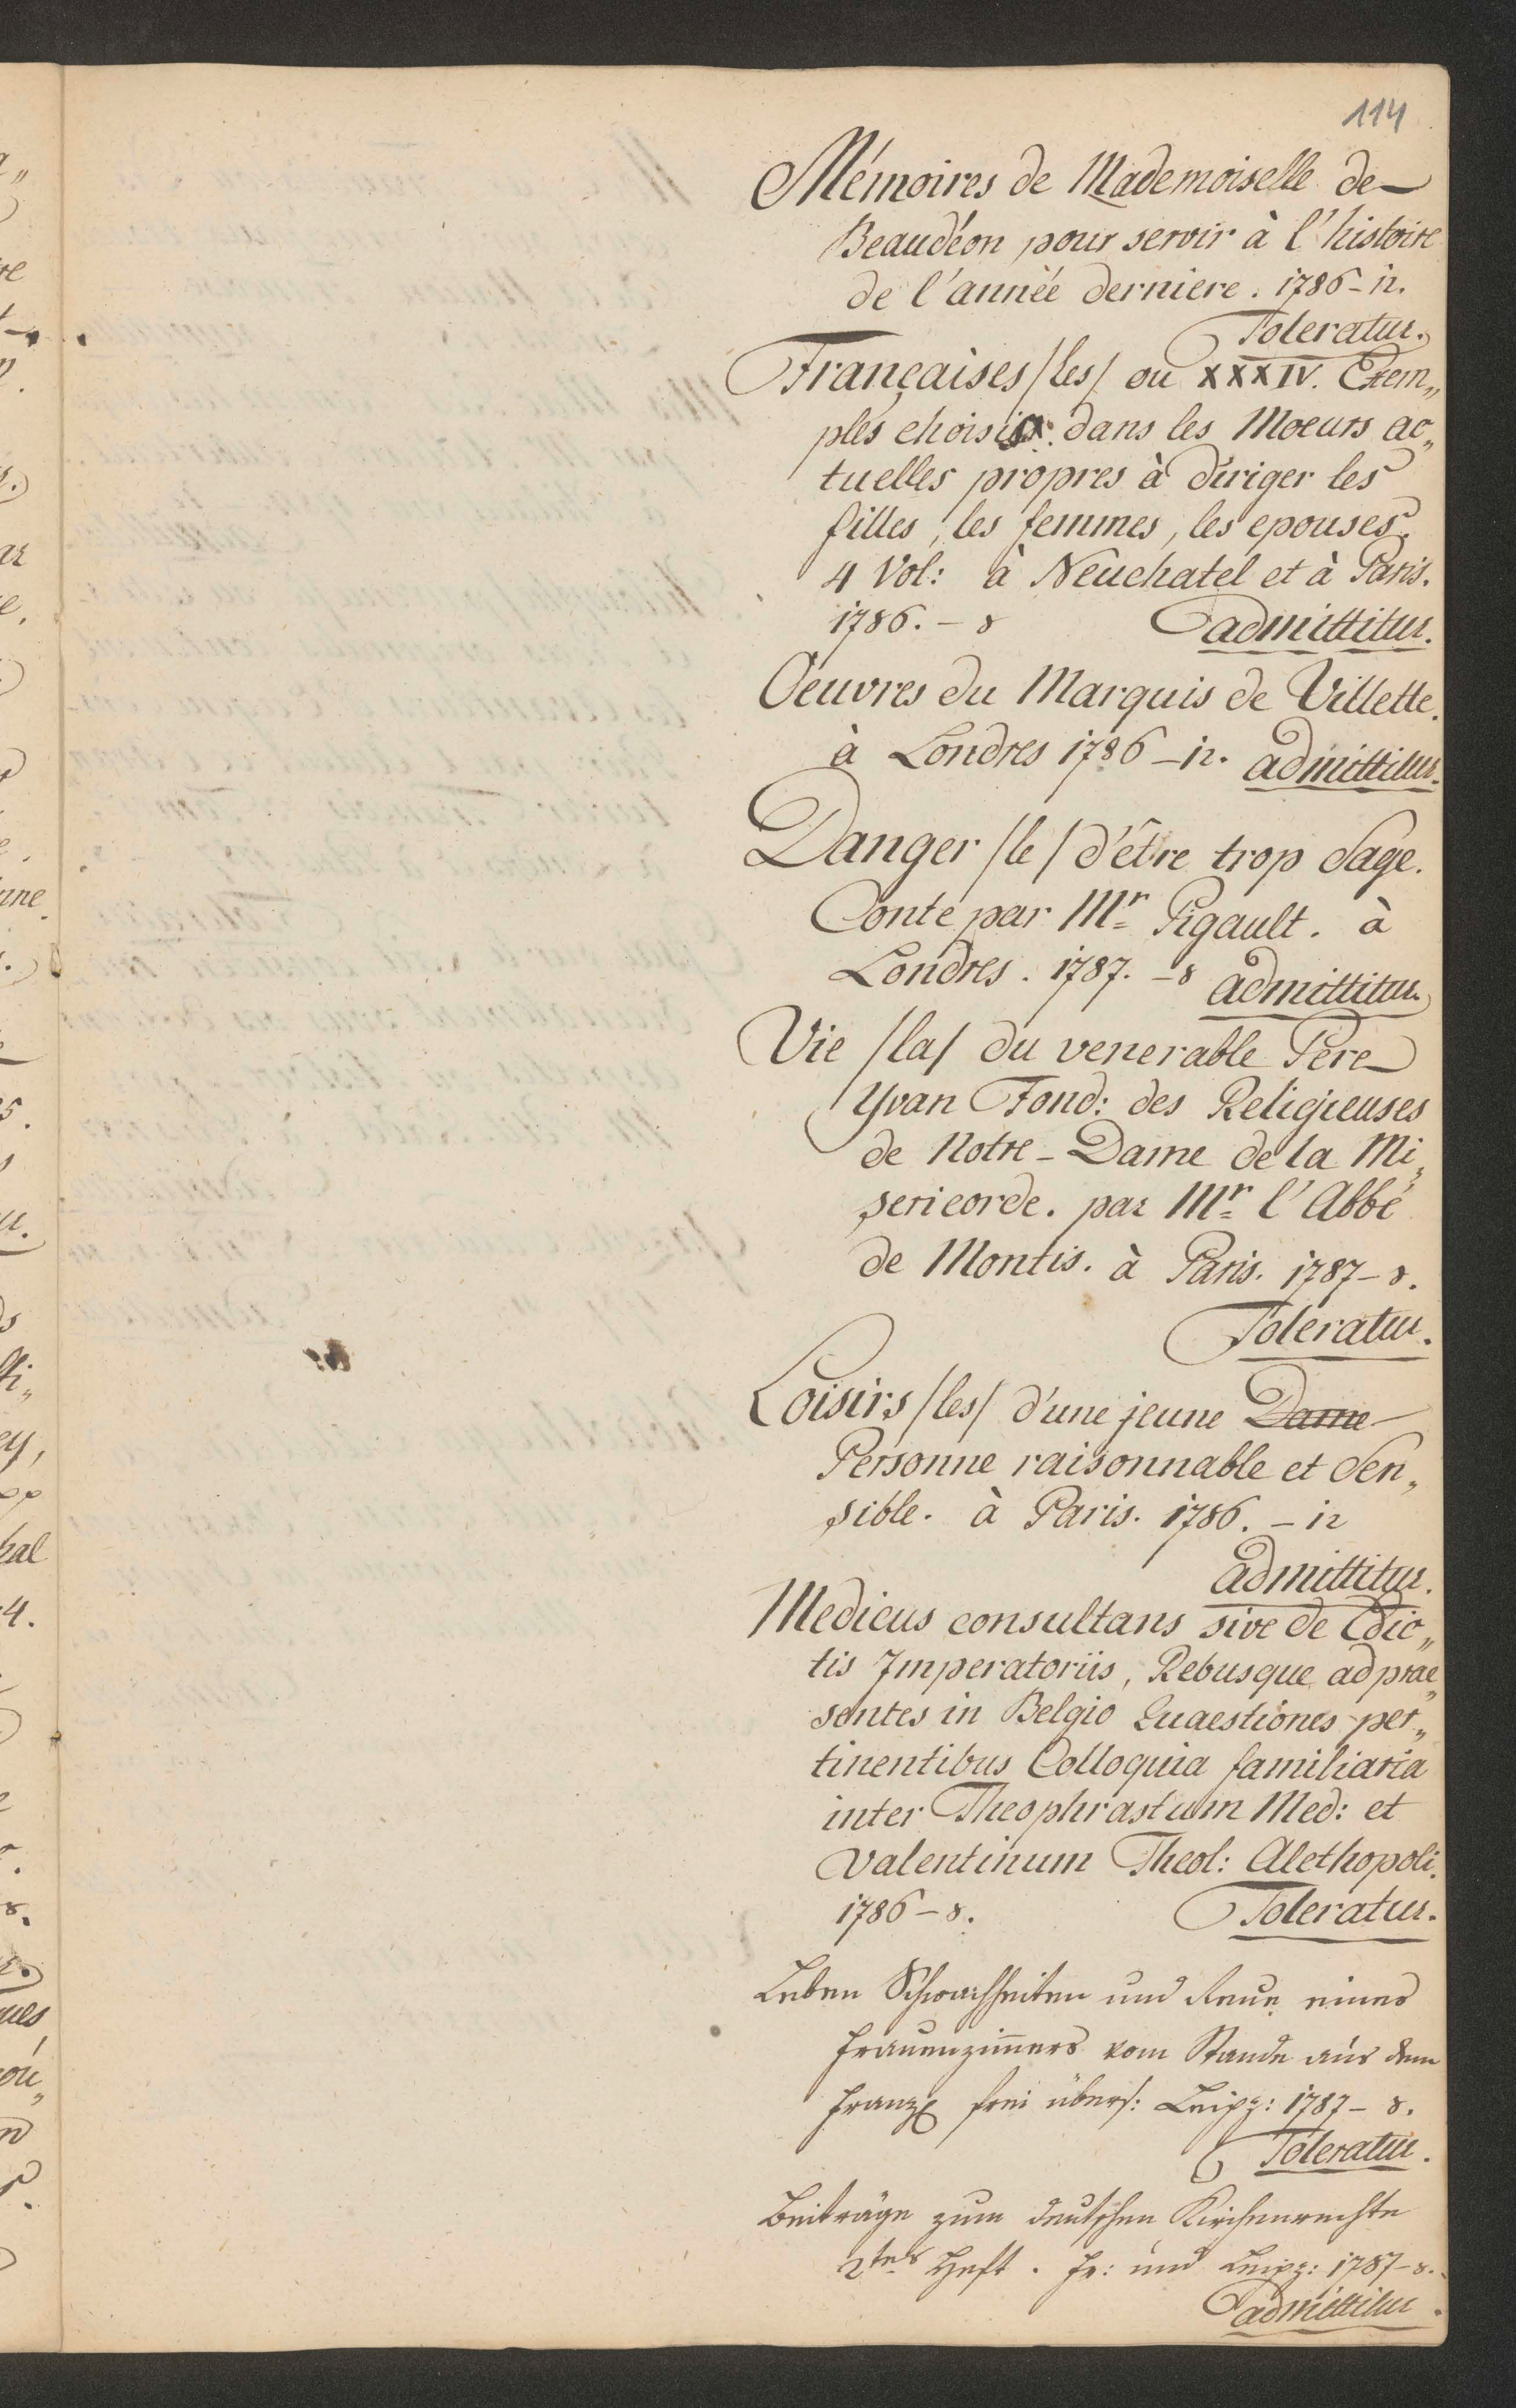 114
Mémoires de Mademoiselle de
Beaudéon pour servir à l'histoire
de l'année derniere. 1786 - 12.
Toleratur.
Françaises /les/ ou XXXIV. Exem„
ples choisis dans les Moeurs ac„
tuelles propres à diriger les
filles, les femmes, les epouses.
4 Vol: à Neuchatel et à Paris.
1786. - 8 admittitur.
Oeuvres du Marquis de Villette.
à Londres 1786 - 12. admittitur.
Danger /le/ d'être trop Sage.
Conte par Mr Pigault. à
Londres. 1787. - 8 admittitur.
Vie /la/ du venerable Pere
Yvan Fond: des Religieuses
de Notre-Dame de la Mi„
sericorde. par Mr l'Abbé
de Montis. à Paris. 1787 - 8.
Toleratur.
Loisirs /les/ d'une jeune Dame
Personne raisonnable et Sen„
sible. à Paris. 1786. - 12
admittitur.
Medicus consultans sive de Edic„
tis Imperatoriis, Rebusque ad prae„
sentes in Belgio Quaestiones per„
tinentibus Colloquia familiaria
inter Theophrastum Med: et
Valentinum Theol: Alethopoli.
1786 - 8. Toleratur.
Leben Schwachheiten und Reue eines
Frauenzimmers vom Stande aus dem
Franz frei übers: Leipz: 1787 - 8.
Toleratur.
Beiträge zum deutschen Kirchenrechte
2tes Heft. Fr: und Leipz: 1787 - 8.
admittitur.